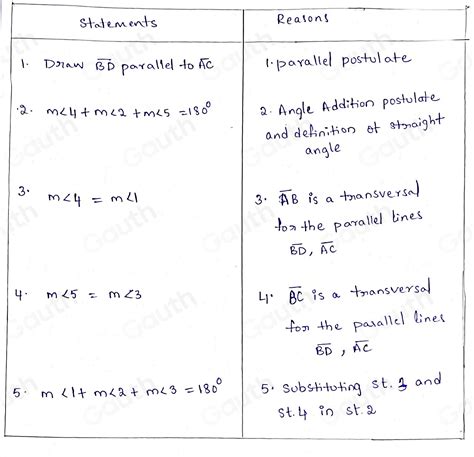 Statements
Reasons
1. Draw BD parallel to AC
1. parallel postulate
2. m<4 + m<2 + m<5 = 180°
2. Angle Addition postulate
and definition of straight
angle
3. m<4 = m<1
3. AB is a transversal
for the parallel lines
BD, AC
4. m<5 = m<3
4. BC is a transversal
for the parallel lines
BD, AC
5. m<1 + m<2 + m<3 = 180°
5. Substituting st. 3 and
st. 4 in st. 2
Gauth